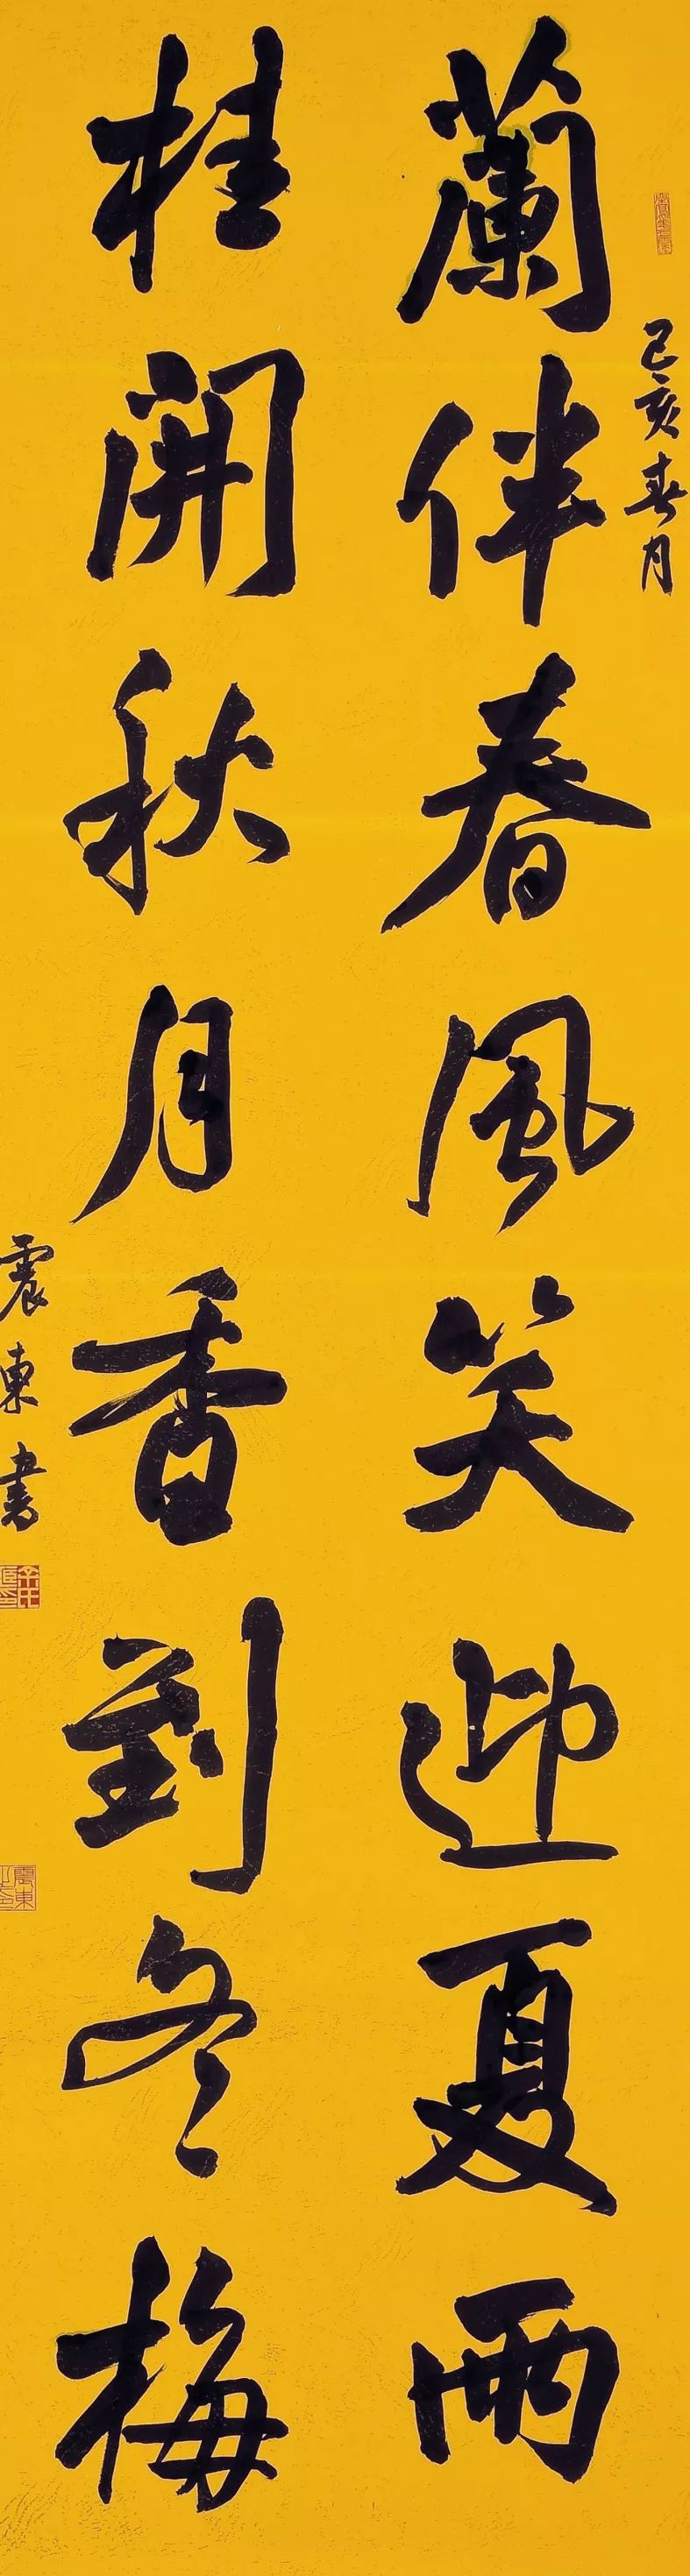 己亥春月
蘭伴春風笑迎夏雨
桂開秋月香到冬梅
震東書